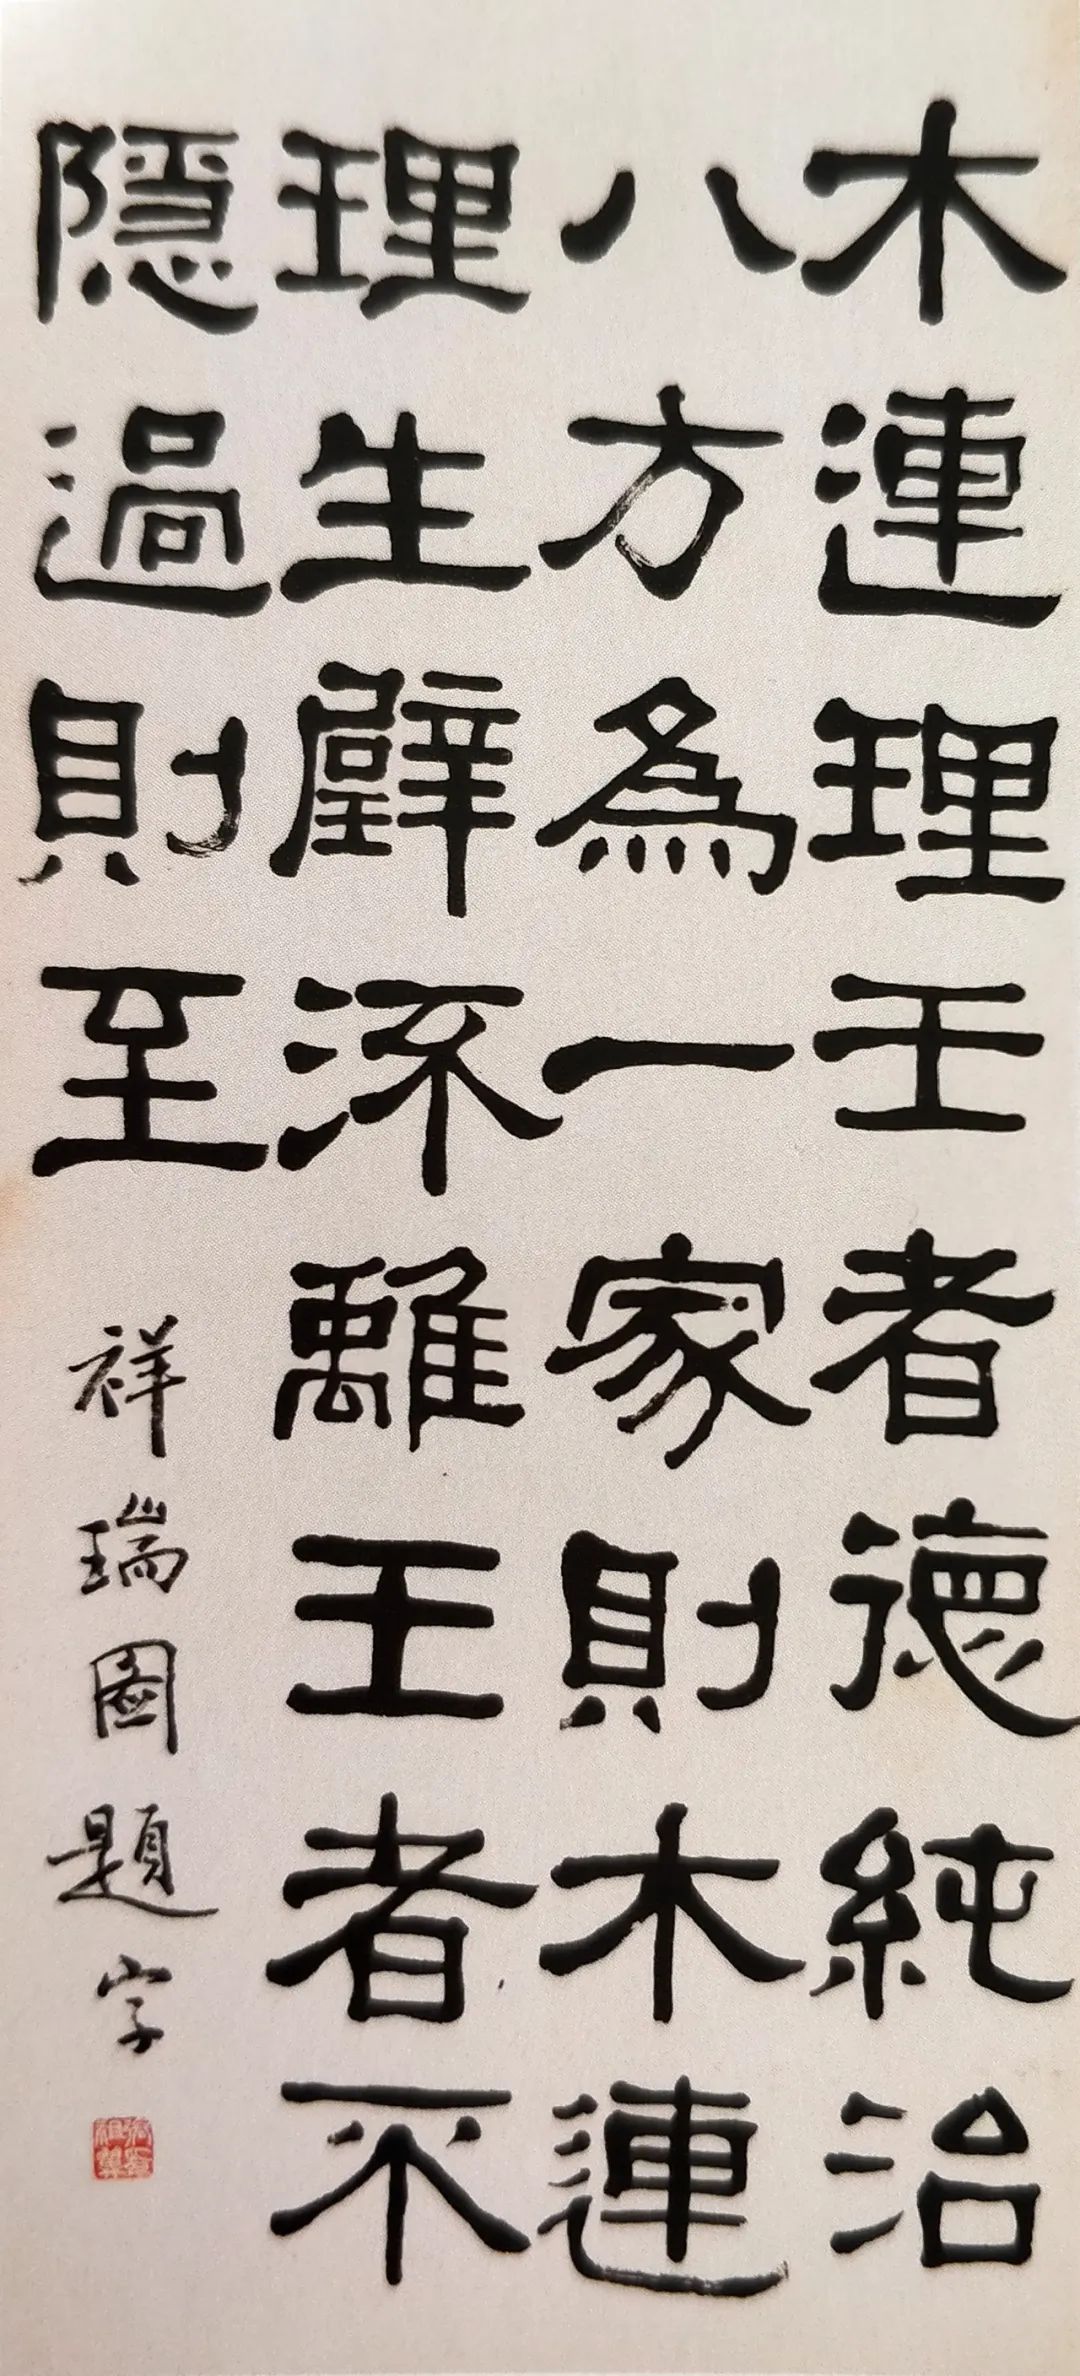 木連理王者德純治
八方為一家則木連
理生璧㳅離王者不
隱過則至
祥瑞圖題字